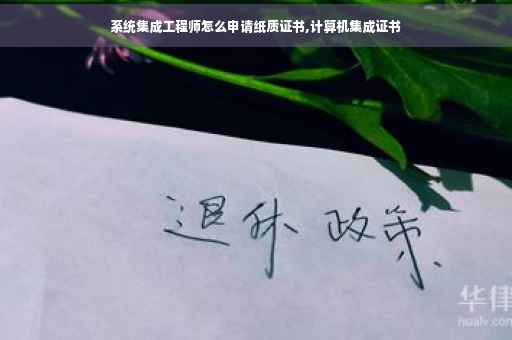 系统集成工程师怎么申请纸质证书,计算机集成证书
退休 政策
华律
hualv.com